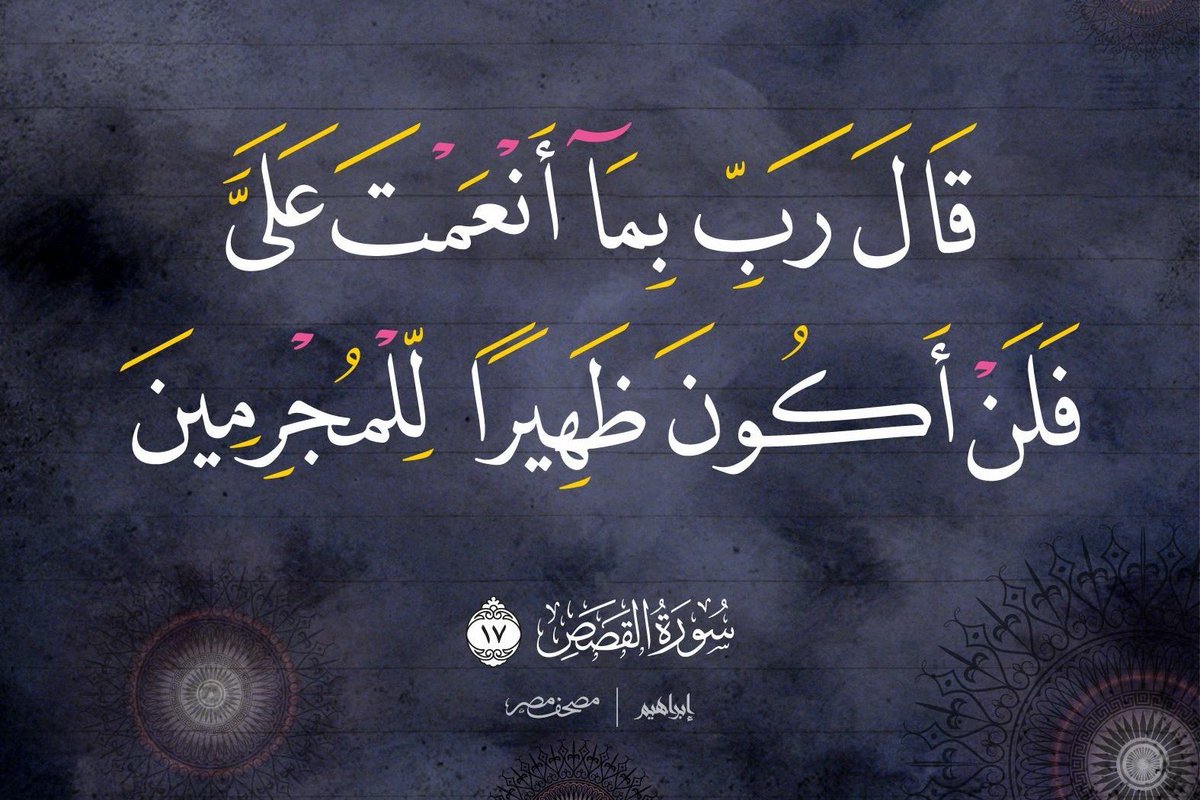 قَالَ رَبِّ بِمَآ أَنْعَمْتَ عَلَىَّ
فَلَنْ أَكُونَ ظَهِيرًا لِّلْمُجْرِمِينَ
سُورَةُ القَصَصِ ١٧
إبراهيم | مصحف مصر